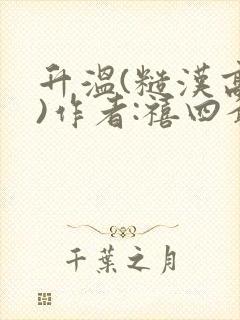 升溫(糙漢高
)作者:禧四
千葉之月